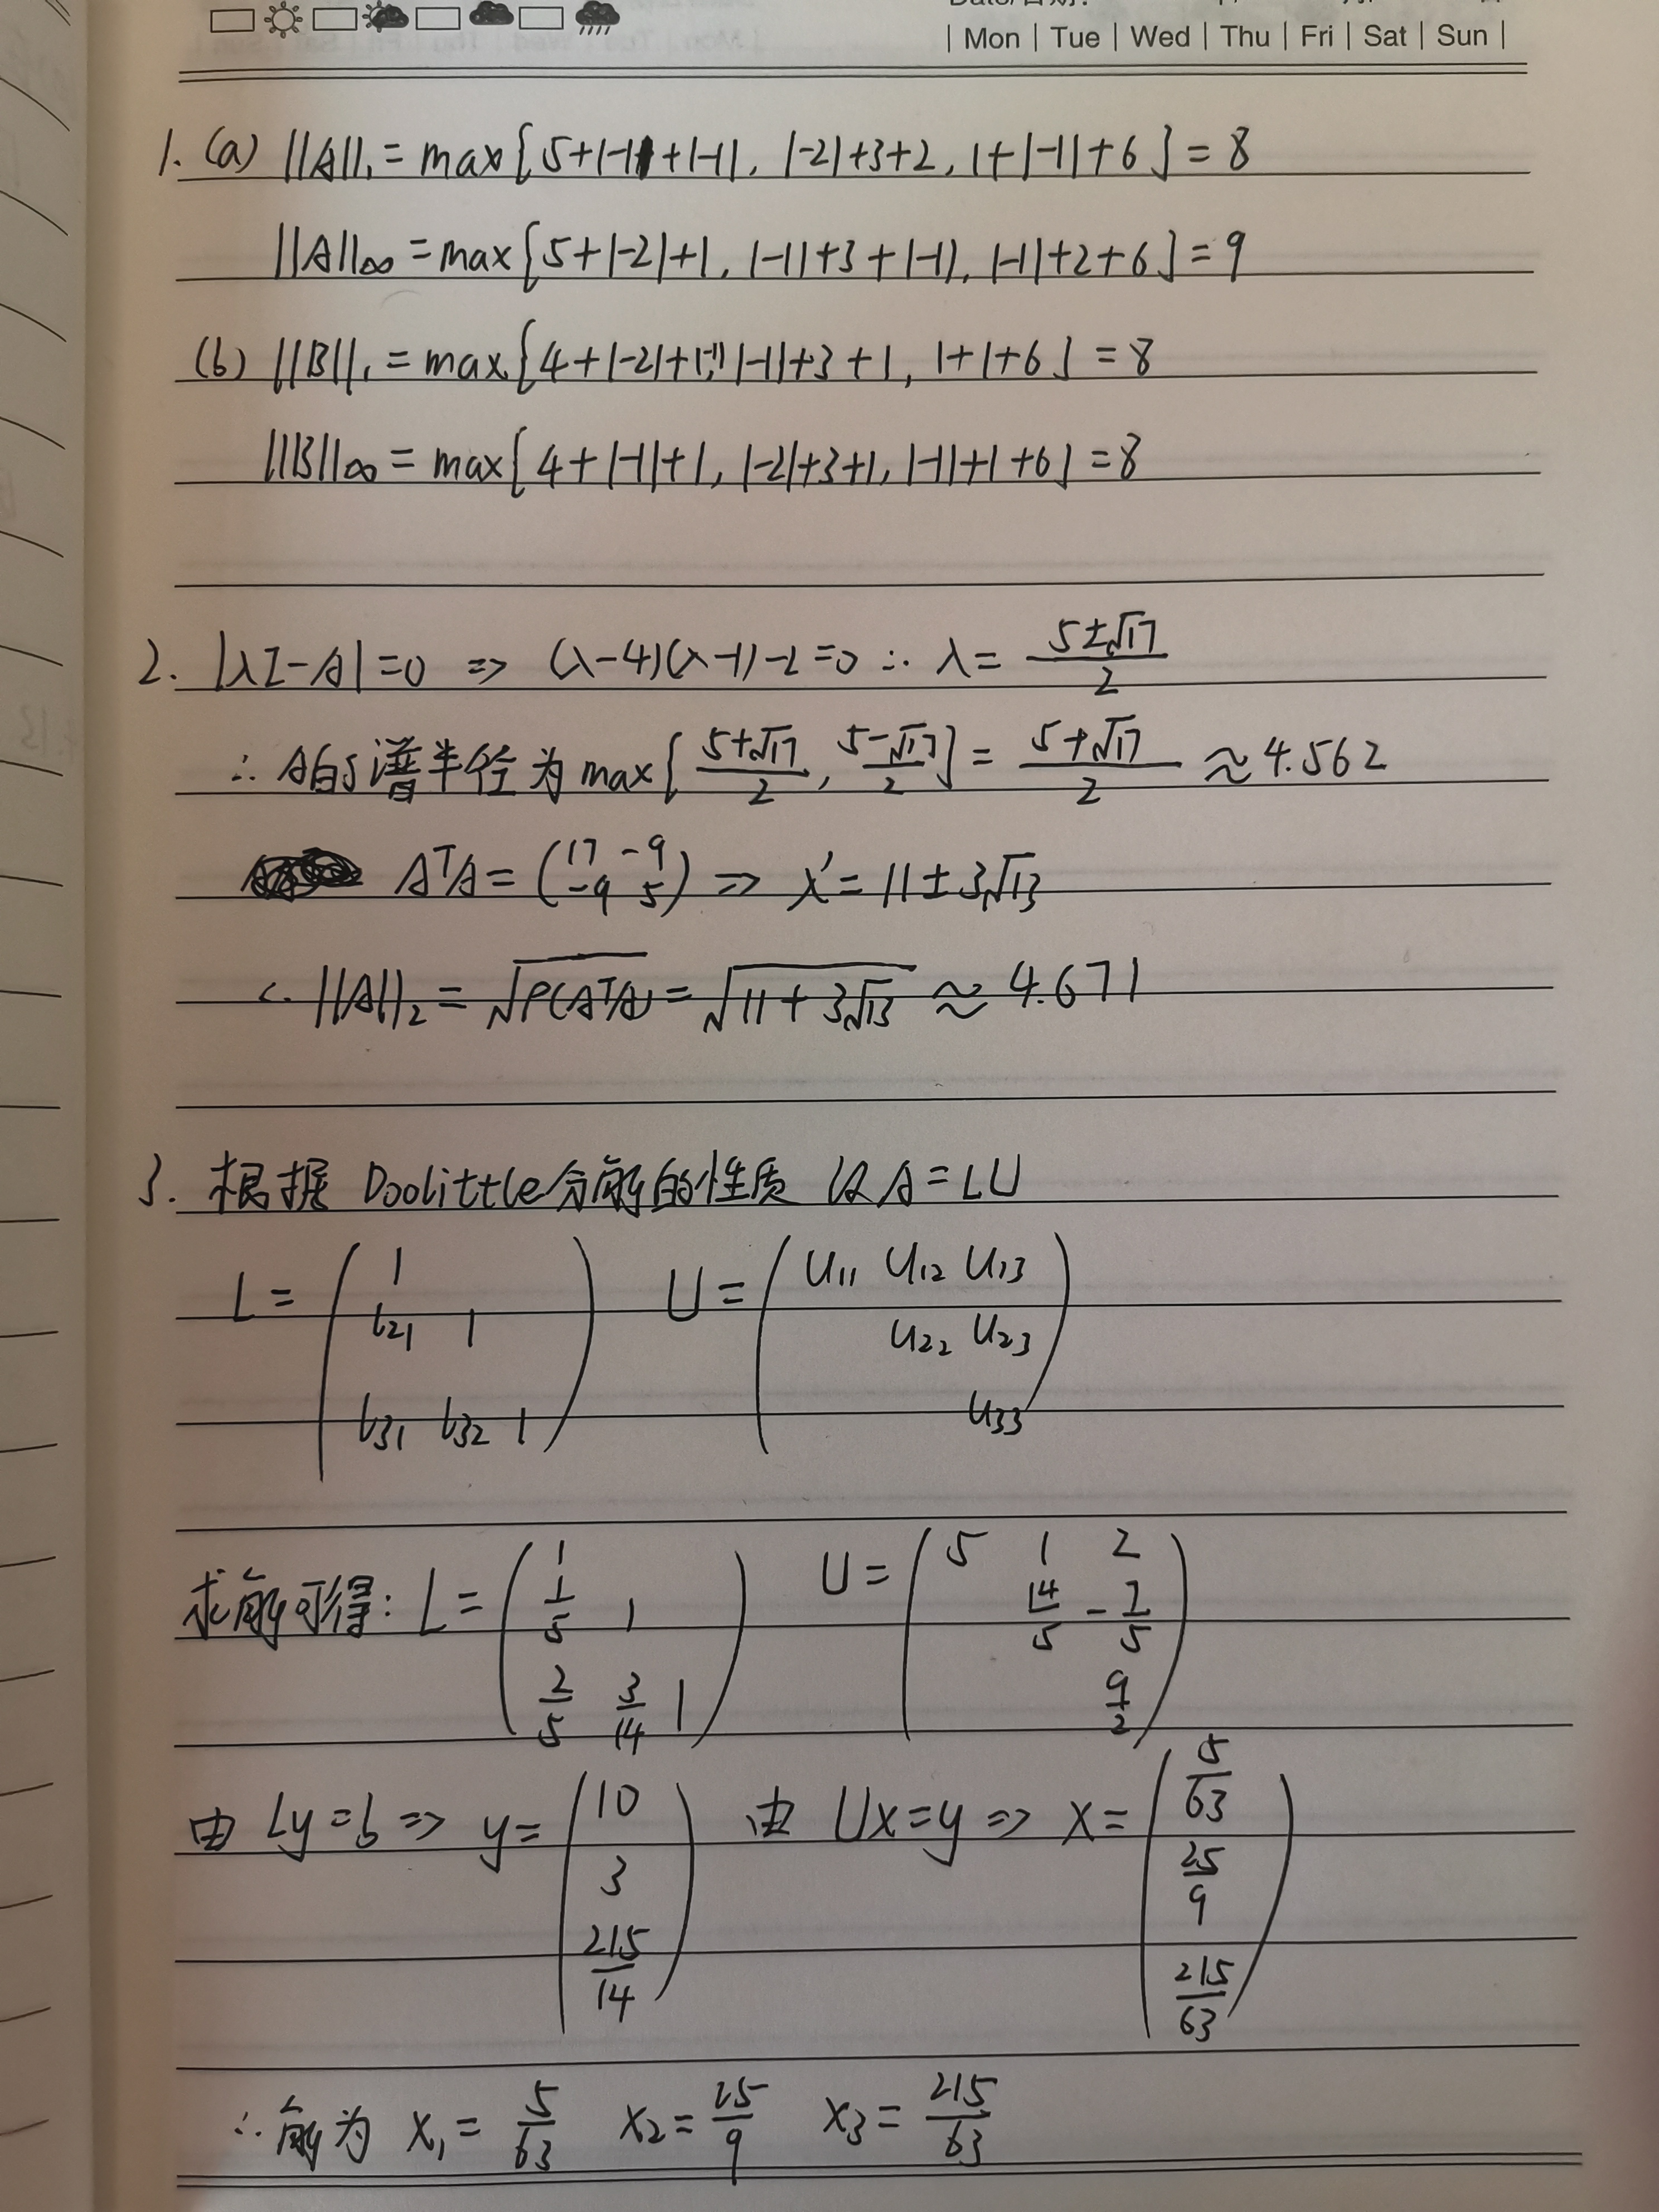 | Mon | Tue | Wed | Thu | Fri | Sat | Sun |
1. (a) ||A||₁ = max{5+|-1|+|-1|, |-2|+3+2, 1+|-1|+6} = 8
||A||∞ = max{5+|-2|+1, |-1|+3+|-1|, |-1|+2+6} = 9
(b) ||B||₁ = max{4+|-2|+|-1|, |-1|+3+1, 1+1+6} = 8
||B||∞ = max{4+|-1|+1, |-2|+3+1, |-1|+1+6} = 8
2. |λI-A|=0 => (λ-4)(λ-1)-2=0 ∴ λ = (5±√17)/2
∴ A的谱半径为 max{(5+√17)/2, (5-√17)/2} = (5+√17)/2 ≈ 4.562
AᵀA = (17 -9; -9 5) => λ' = 11±3√13
∴ ||A||₂ = √ρ(AᵀA) = √(11+3√13) ≈ 4.671
3. 根据 Doolittle分解的性质 设A=LU
L = (1; l₂₁ 1; l₃₁ l₃₂ 1) U = (u₁₁ u₁₂ u₁₃; u₂₂ u₂₃; u₃₃)
求解可得: L = (1; 1/5 1; 2/5 3/14 1) U = (5 1 2; 14/5 -7/5; 9/2)
由 Ly=b => y = (10; 3; 215/14) 由 Ux=y => x = (5/63; 25/9; 215/63)
∴ 解为 x₁ = 5/63 x₂ = 25/9 x₃ = 215/63